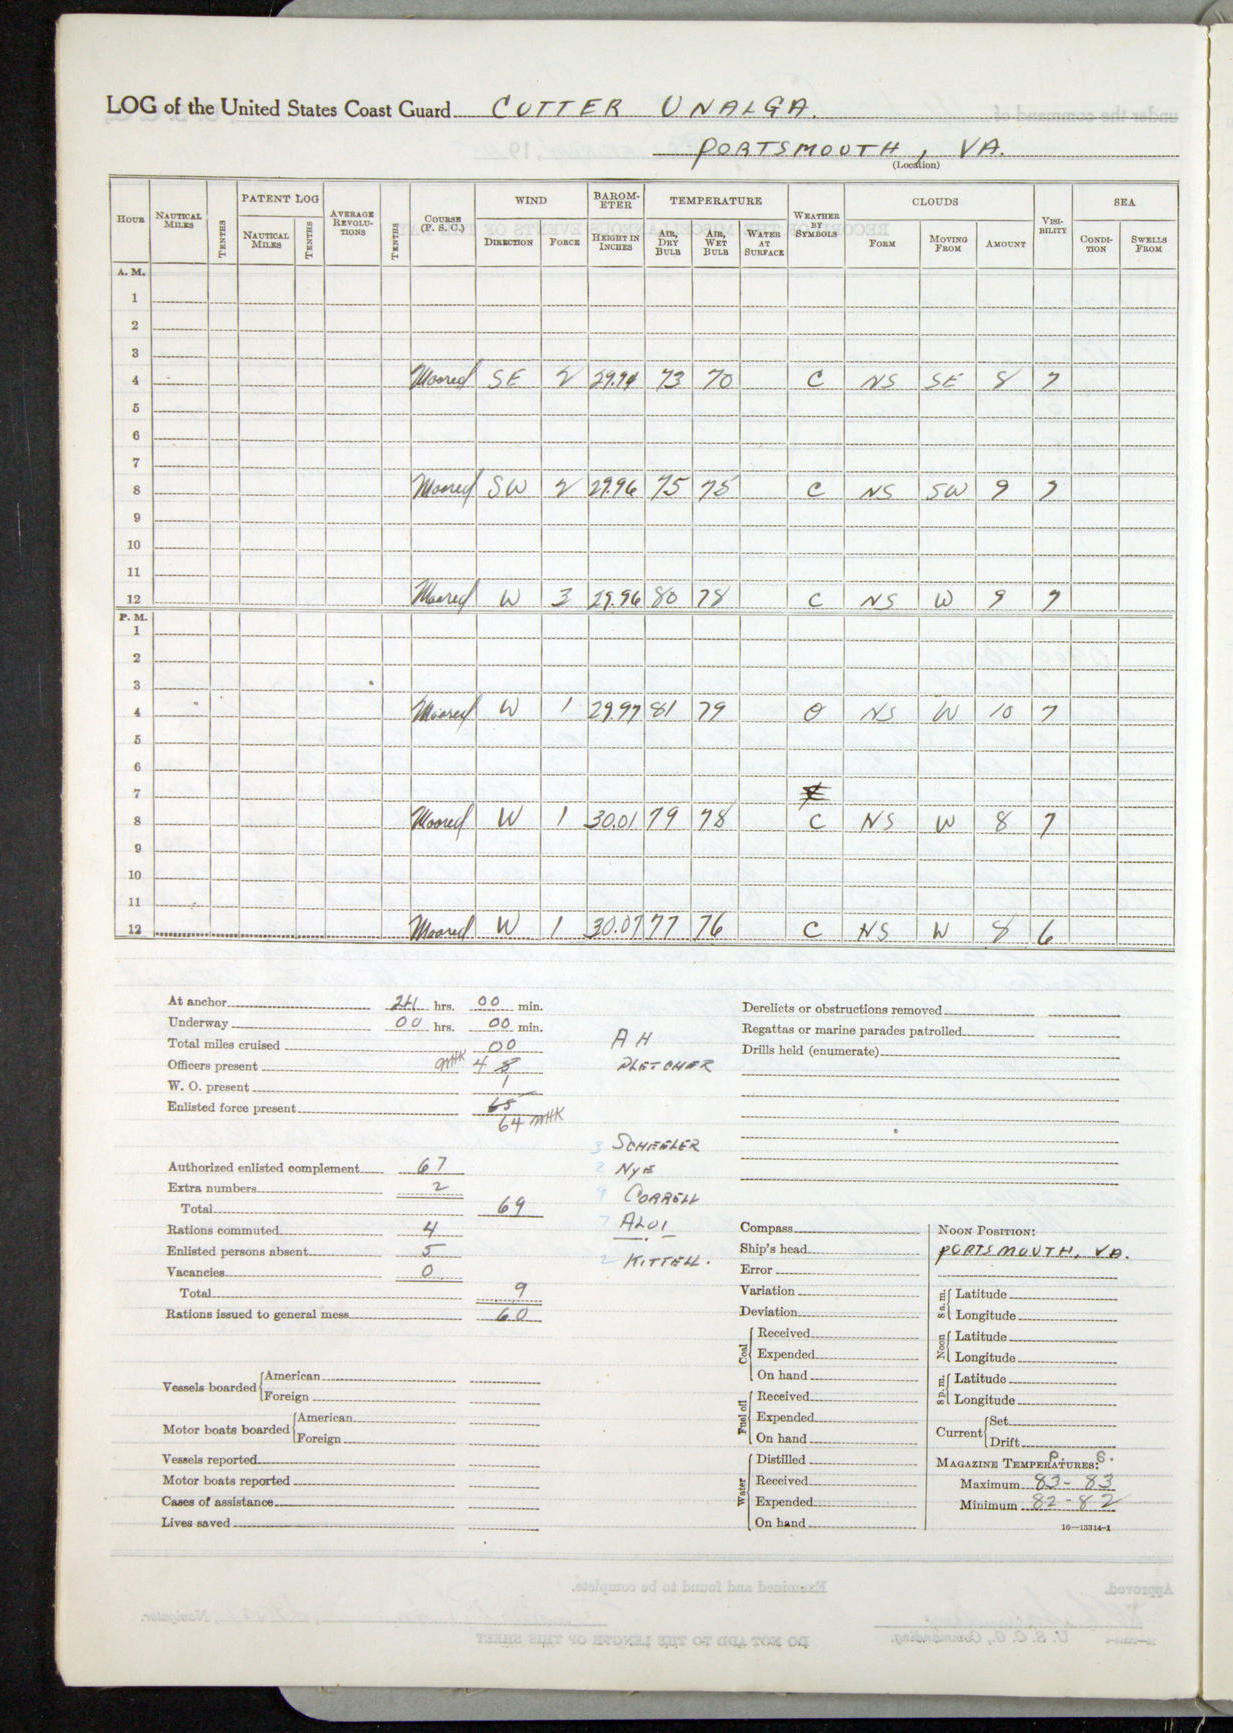 LOG of the United States Coast Guard CUTTER UNALGA.
PORTSMOUTH, VA.
(Location)
HOUR NAUTICAL MILES TENTHS PATENT LOG NAUTICAL MILES TENTHS AVERAGE REVOLUTIONS TENTHS COURSE (P. S. C.) WIND DIRECTION FORCE BAROMETER HEIGHT IN INCHES TEMPERATURE AIR, DRY BULB AIR, WET BULB WATER AT SURFACE WEATHER BY SYMBOLS CLOUDS FORM MOVING FROM AMOUNT VISIBILITY SEA CONDITION SWELLS FROM
A. M.
1
2
3
4 Moored SE 2 29.94 73 70 C NS SE 8 7
5
6
7
8 Moored SW 2 29.96 75 75 C NS SW 9 7
9
10
11
12 Moored W 3 29.96 80 78 C NS W 9 7
P. M.
1
2
3
4 Moored W 1 29.97 81 79 O NS W 10 7
5
6
7
8 Moored W 1 30.01 79 78 C NS W 8 7
9
10
11
12 Moored W 1 30.07 77 76 C NS W 8 6
At anchor 24 hrs. 00 min.
Underway 00 hrs. 00 min.
Total miles cruised 00
Officers present 4
W. O. present 1
Enlisted force present 65
64
Authorized enlisted complement 67
Extra numbers 2
Total 69
Rations commuted 4
Enlisted persons absent 5
Vacancies 0
Total 9
Rations issued to general mess 60
Vessels boarded American
Foreign
Motor boats boarded American
Foreign
Vessels reported
Motor boats reported
Cases of assistance
Lives saved
A H
PLETCHER
3 SCHEELER
2 NYE
9 CORRELL
7 ALOI
2 KITTELL.
Derelicts or obstructions removed
Regattas or marine parades patrolled
Drills held (enumerate)
Compass
Ship's head
Error
Variation
Deviation
Coal Received
Expended
On hand
Fuel oil Received
Expended
On hand
Water Distilled
Received
Expended
On hand
NOON POSITION:
PORTSMOUTH, VA.
8 a. m. Latitude
Longitude
Noon Latitude
Longitude
8 p. m. Latitude
Longitude
Current Set
Drift
MAGAZINE TEMPERATURES: P. S.
Maximum 83 - 83
Minimum 82 - 82
16—13314-1